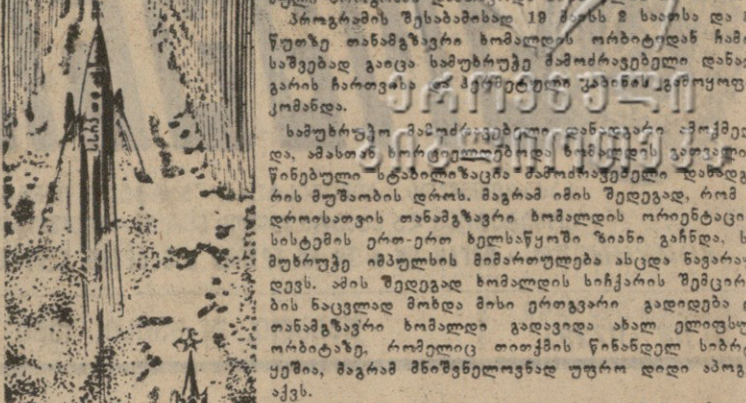 პროგრამის შესაბამისად 19 მაისს 2 საათსა და
წუთზე თანამგზავრი ხომალდის ორბიტიდან ჩამო
საშვებად გაიცა სამუხრუჭე მამოძრავებელი დანად
გარის ჩართვისა და ჰერმეტული კაბინის გამოყოფ
კომანდა.
სამუხრუჭო მამოძრავებელი დანადგარი ამოქმედ
და, ამასთან ხორციელდებოდა ხომალდის გათვალის
წინებული სტაბილიზაცია მამოძრავებელი დანადგა
რის მუშაობის დროს. მაგრამ იმის შედეგად, რომ
დროისათვის თანამგზავრი ხომალდის ორიენტაცი
სისტემის ერთ-ერთ ხელსაწყოში ზიანი გაჩნდა, ს
მუხრუჭე იმპულსის მიმართულება ასცდა ნავარაუ
დევს. ამის შედეგად ხომალდის სიჩქარის შემცირ
ბის ნაცვლად მოხდა მისი ერთგვარი გადიდება
თანამგზავრი ხომალდი გადავიდა ახალ ელიფსუ
ორბიტაზე, რომელიც თითქმის წინანდელ სიბრ
ყეშია, მაგრამ მნიშვნელოვნად უფრო დიდი აპოგ
აქვს.
ეროვნული
ბიბლიოთეკა
სსრკ